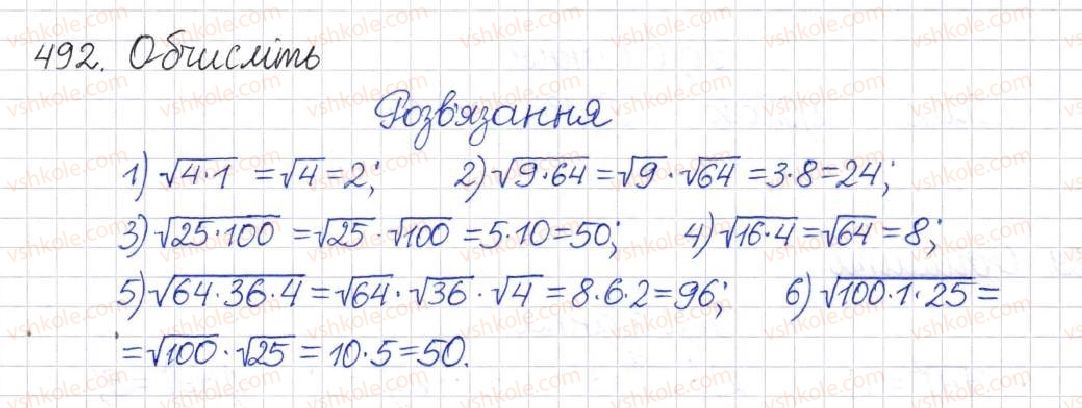 492. Обчисліть
Розв'язання
1) √4·1 = √4 = 2; 2) √9·64 = √9 · √64 = 3·8 = 24;
3) √25·100 = √25 · √100 = 5·10 = 50; 4) √16·4 = √64 = 8;
5) √64·36·4 = √64 · √36 · √4 = 8·6·2 = 96; 6) √100·1·25 =
= √100 · √25 = 10·5 = 50.